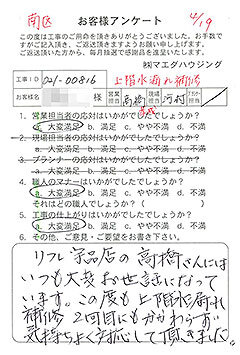 南区 4/19
お客様アンケート
この度は工事のご用命を頂きありがとうございました。お手数で
すがご記入頂き、ご返送頂きますようお願い申し上げます。
ご返送頂いた方から、毎月抽選で感謝品を進呈いたします。
㈱マエダハウジング
工事ID 021-00816 上階水漏れ補修
お客様名 様 営業担当 高橋 現場担当 河村
1. 営業担当者の応対はいかがでしたでしょうか?
a. 大変満足 b. 満足 c. やや不満 d. 不満
2. 現場担当者の応対はいかがでしたでしょうか?
a. 大変満足 b. 満足 c. やや不満 d. 不満
3. プランナーの応対はいかがでしたでしょうか?
a. 大変満足 b. 満足 c. やや不満 d. 不満
4. 職人のマナーはいかがでしたでしょうか?
a. 大変満足 b. 満足 c. やや不満 d. 不満
それはどの職人でしょうか?( )
5. 工事の仕上がりはいかがでしたでしょうか?
a. 大変満足 b. 満足 c. やや不満 d. 不満
6. その他、ご意見・ご要望をお書き下さい。
リフレ 宇品店の高橋さんには
いつも大変お世話になって
います。この度も上階水漏れ
補修 2回目にもかかわらず
気持ちよく対応して頂きました。